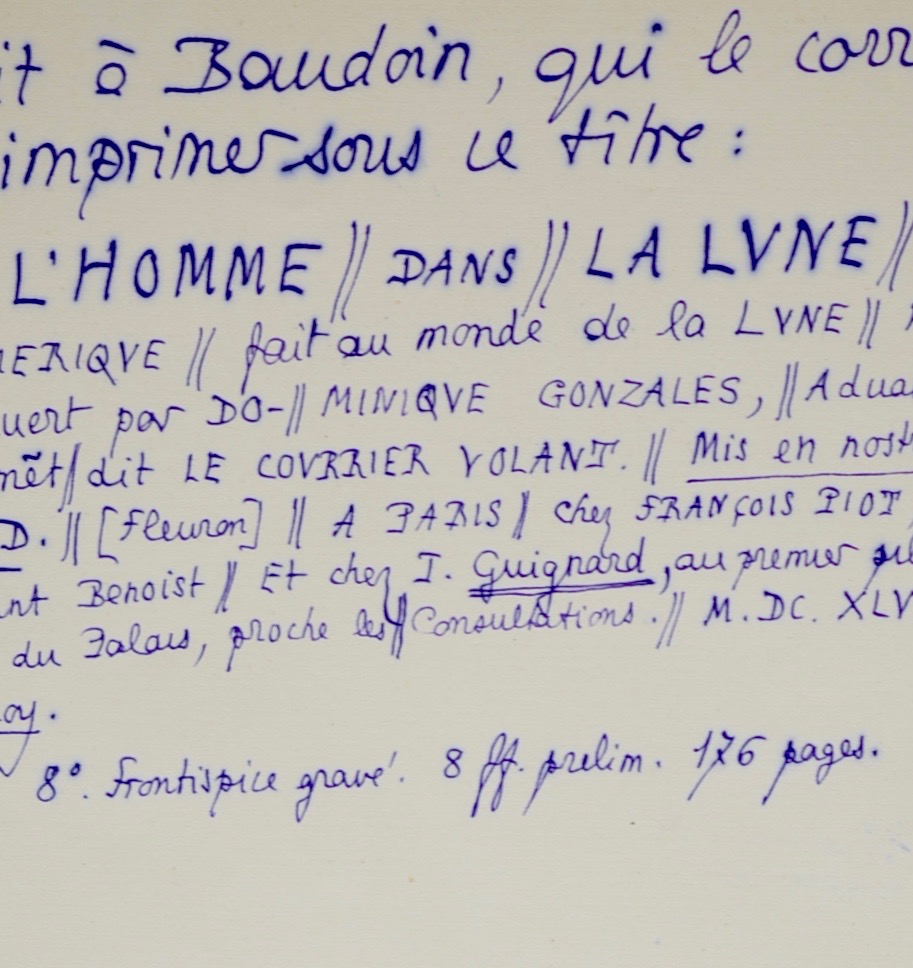 it à Baudoin, qui le corr
imprimer sous ce titre :
L'HOMME // DANS // LA LVNE //
ERIQVE // fait au monde de la LVNE //
uert par DO-// MINIQVE GONZALES, // Adua
mēt// dit LE COVRRIER VOLANT. // Mis en nost
D. // [fleuron] // A PARIS / chez FRANÇOIS PIOT
nt Benoist // Et chez I. Guignard, au premier pil
du Palais, proche les // Consultations. // M. DC. XLV
oy.
8°. frontispice gravé. 8 ff. prelim. 176 pages.